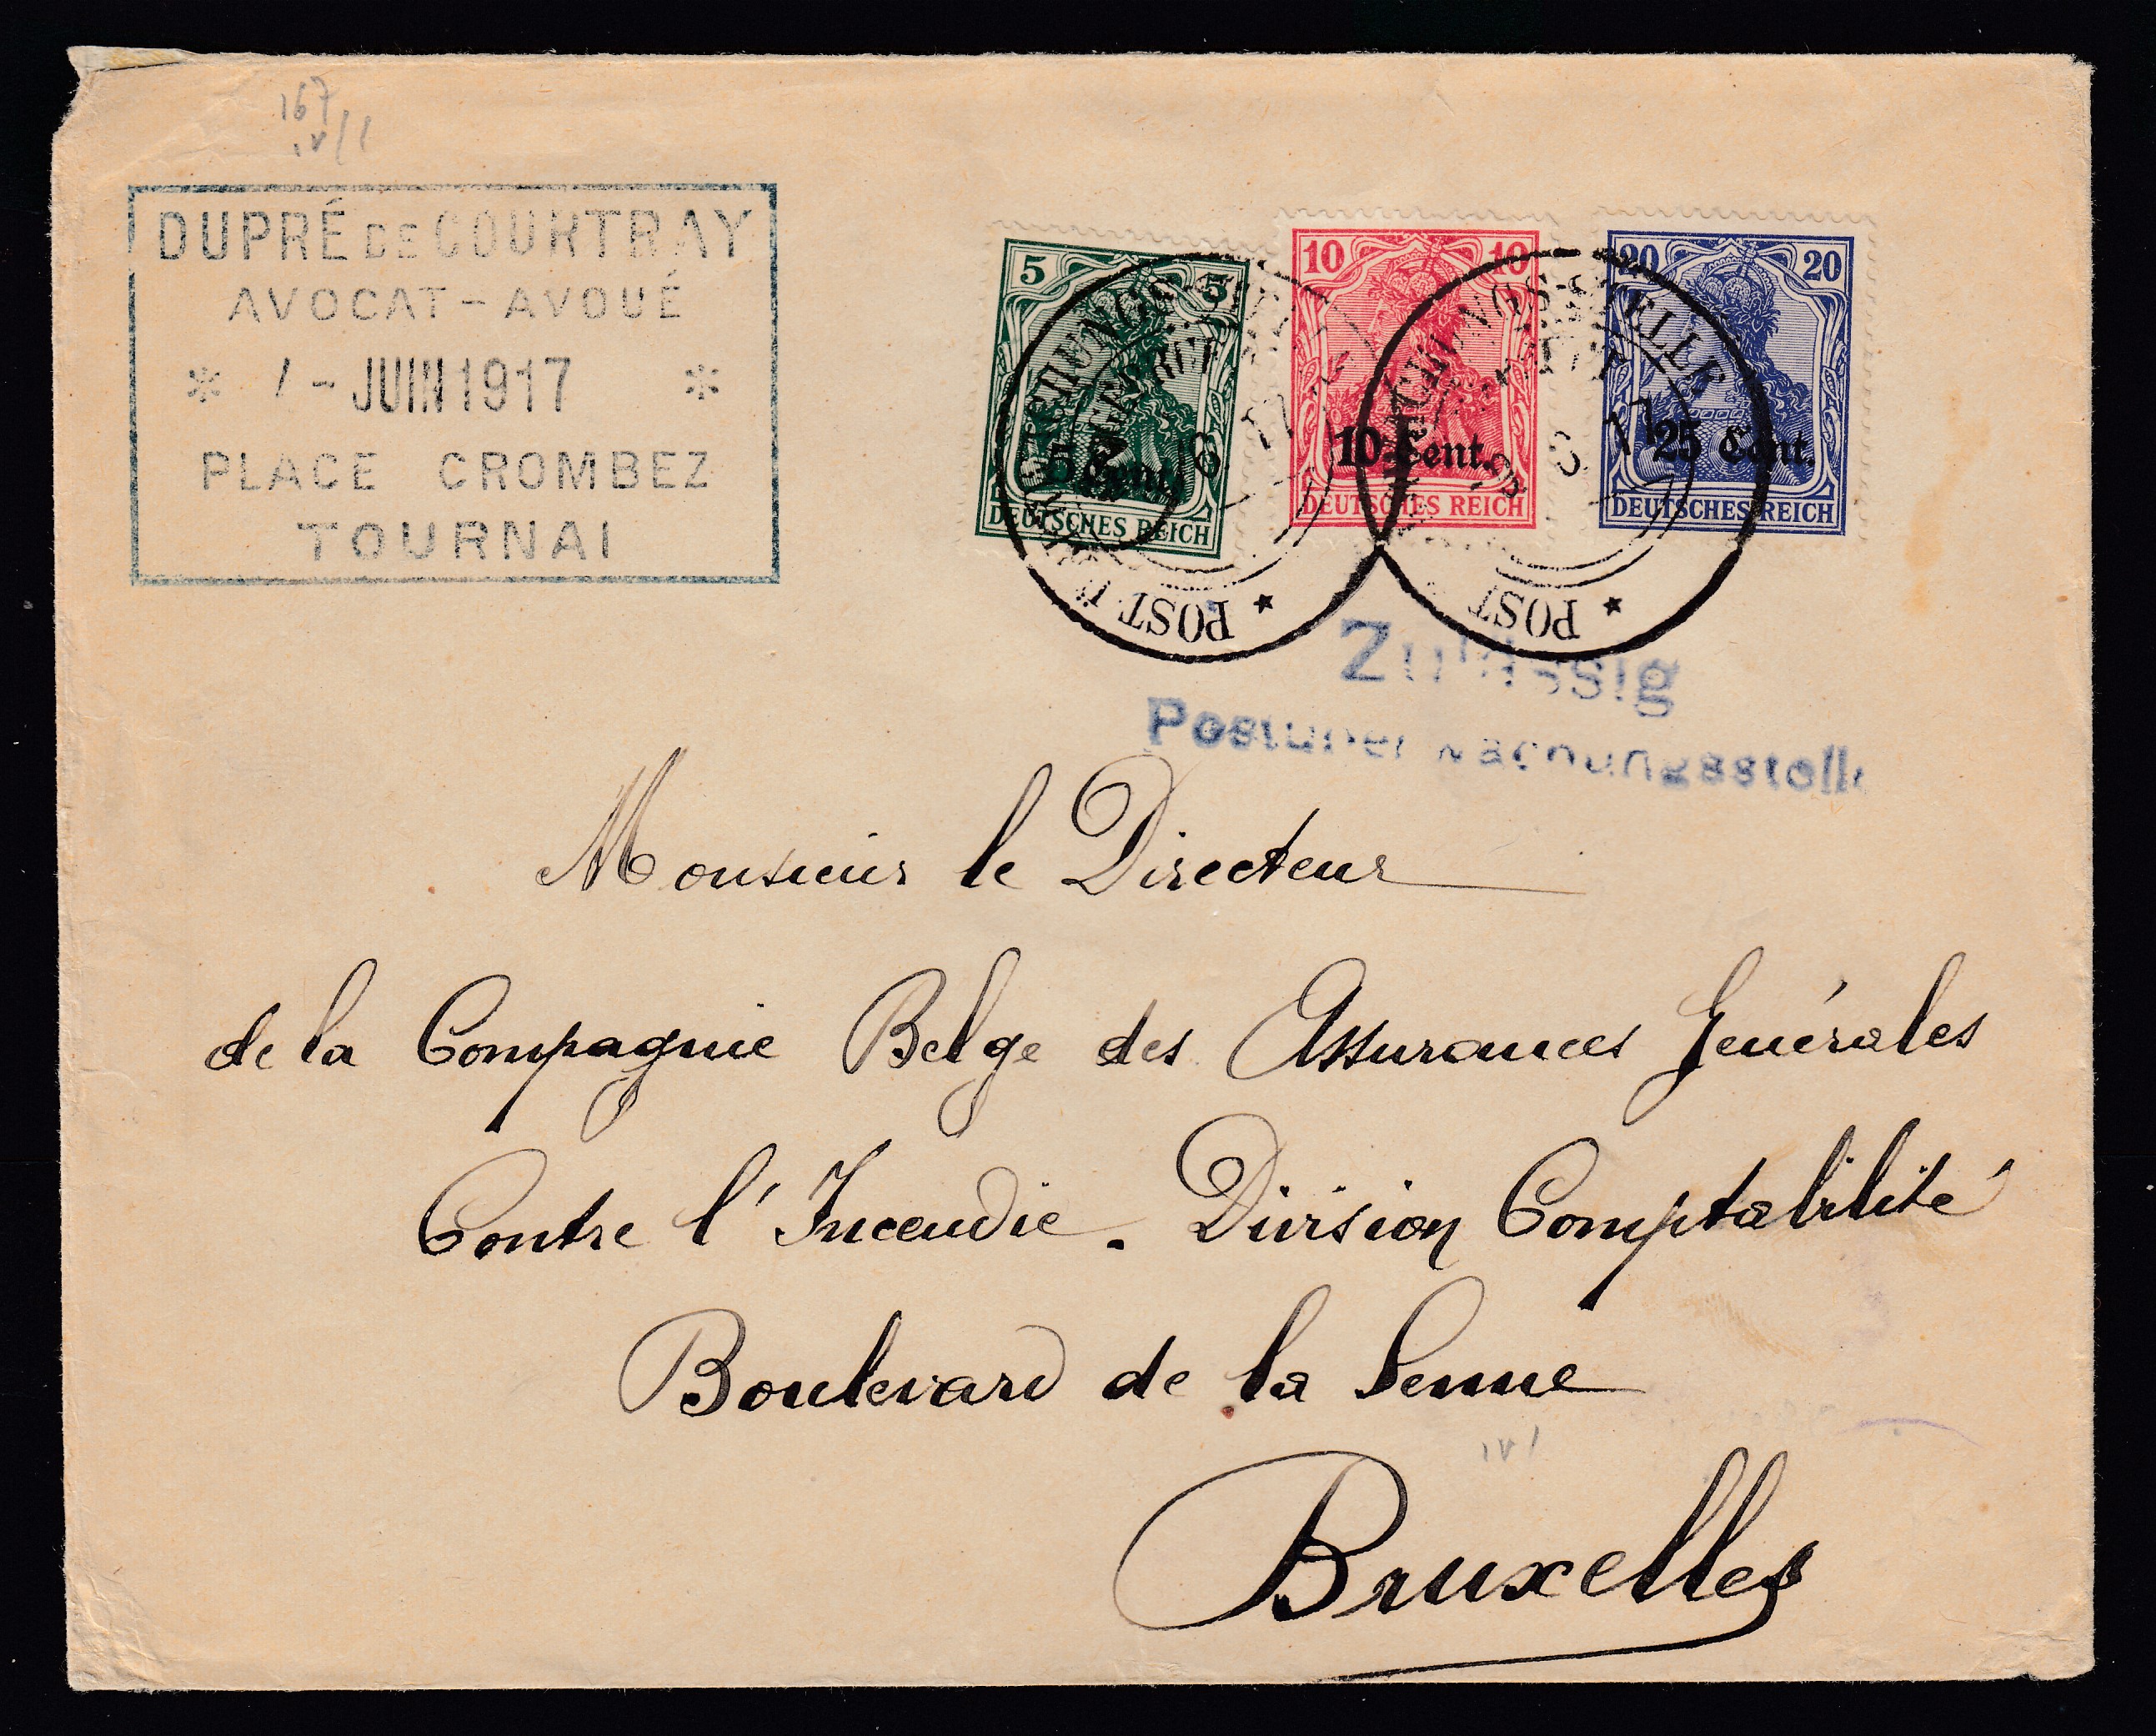 167
DUPRÉ DE COURTRAY
AVOCAT - AVOUÉ
* 1 - JUIN 1917 *
PLACE CROMBEZ
TOURNAI
5 5
5 Cent.
DEUTSCHES REICH
10 10
10 Cent.
DEUTSCHES REICH
20 20
25 Cent.
DEUTSCHES REICH
* POST
* POST
Zulässig
Postüberwachungsstelle
Monsieur le Directeur
de la Compagnie Belge des Assurances Générales
Contre l'Incendie. Division Comptabilité
Boulevard de la Senne
Bruxelles